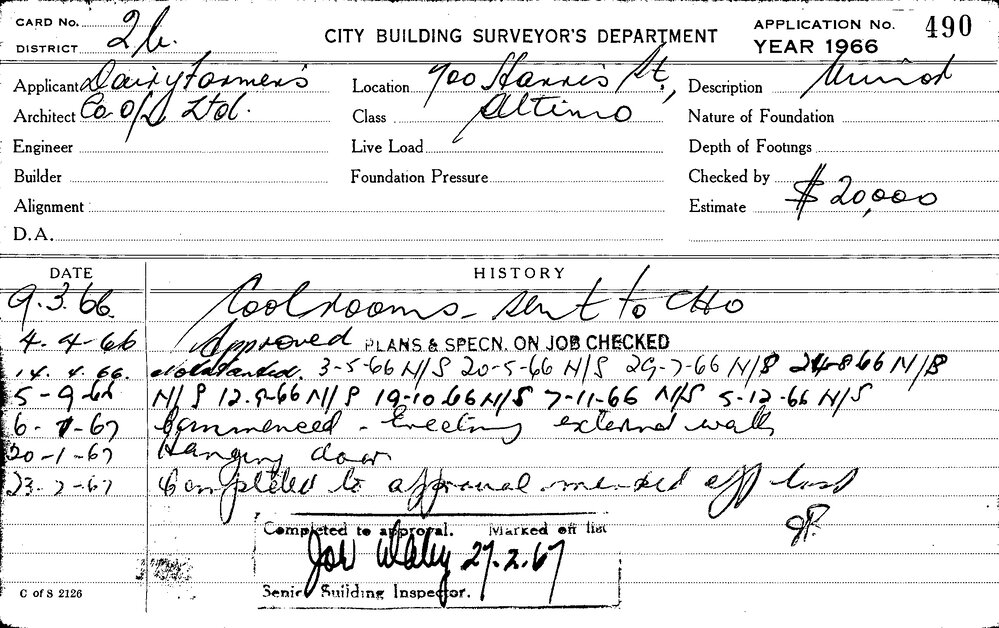 CARD No.
DISTRICT 2b.
CITY BUILDING SURVEYOR'S DEPARTMENT
APPLICATION No. 490
YEAR 1966
Applicant Dairy Farmers
Location 700 Harris St.,
Description
Architect Co Op Ltd.
Class
Nature of Foundation
Engineer
Live Load
Depth of Footings
Builder
Foundation Pressure
Checked by
Alignment
Estimate $20,000
D.A.
DATE HISTORY
9.3.66 Coolrooms - sent to CHO
4.4-66 Approved PLANS & SPECN. ON JOB CHECKED
14.4.66. Not started. 3-5-66 N/S 20-5-66 N/S 29-7-66 N/S 24-8-66 N/S
5-9-66 N/S 12.9-66 N/S 19-10.66 N/S 7-11-66 N/S 5-12-66 N/S
6-1-67 Commenced - Erecting external walls
20-1-67 Hanging door
23-2-67 Completed to approval marked off list
Completed to approval. Marked off list
27.2.67
Senior Building Inspector.
C of S 2126